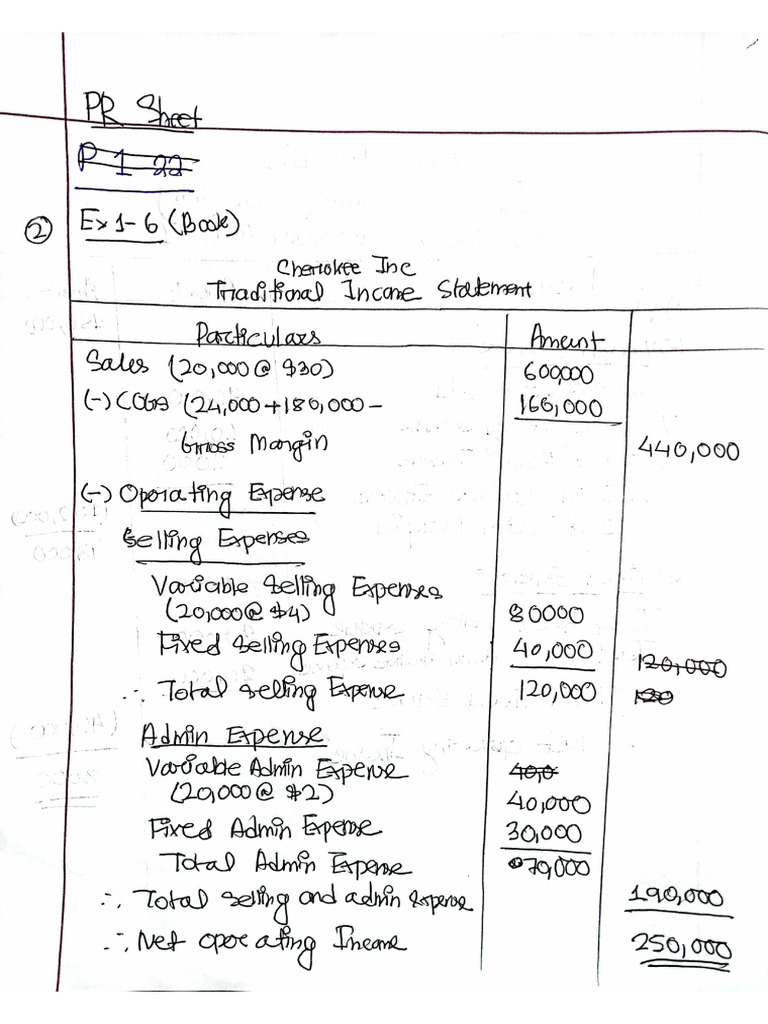 PR Sheet
P 1-22
② Ex 1-6 (Book)
Cherokee Inc
Traditional Income Statement
Particulars Amount
Sales (20,000 @ $30) 600,000
(-) COGS (24,000+180,000 - 160,000
Gross Margin 440,000
(-) Operating Expense
Selling Expenses
Variable Selling Expenses
(20,000 @ $4) 80000
Fixed Selling Expenses 40,000 120,000
∴ Total selling Expense 120,000 120
Admin Expense
Variable Admin Expense 40,0
(20,000 @ $2) 40,000
Fixed Admin Expense 30,000
Total Admin Expense 70,000
∴ Total selling and admin expense 190,000
∴ Net operating Income 250,000